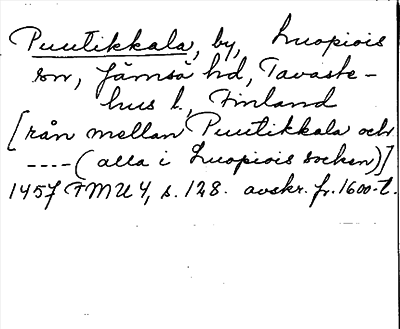 Puutikkala, by, Luopiois
sn, Jämsä hd, Tavaste-
hus l., Finland
[rån mellan Puutikkala och
----(alla i Luopiois socken)]
1457 FMU 4, s. 128. avskr. fr. 1600-t.